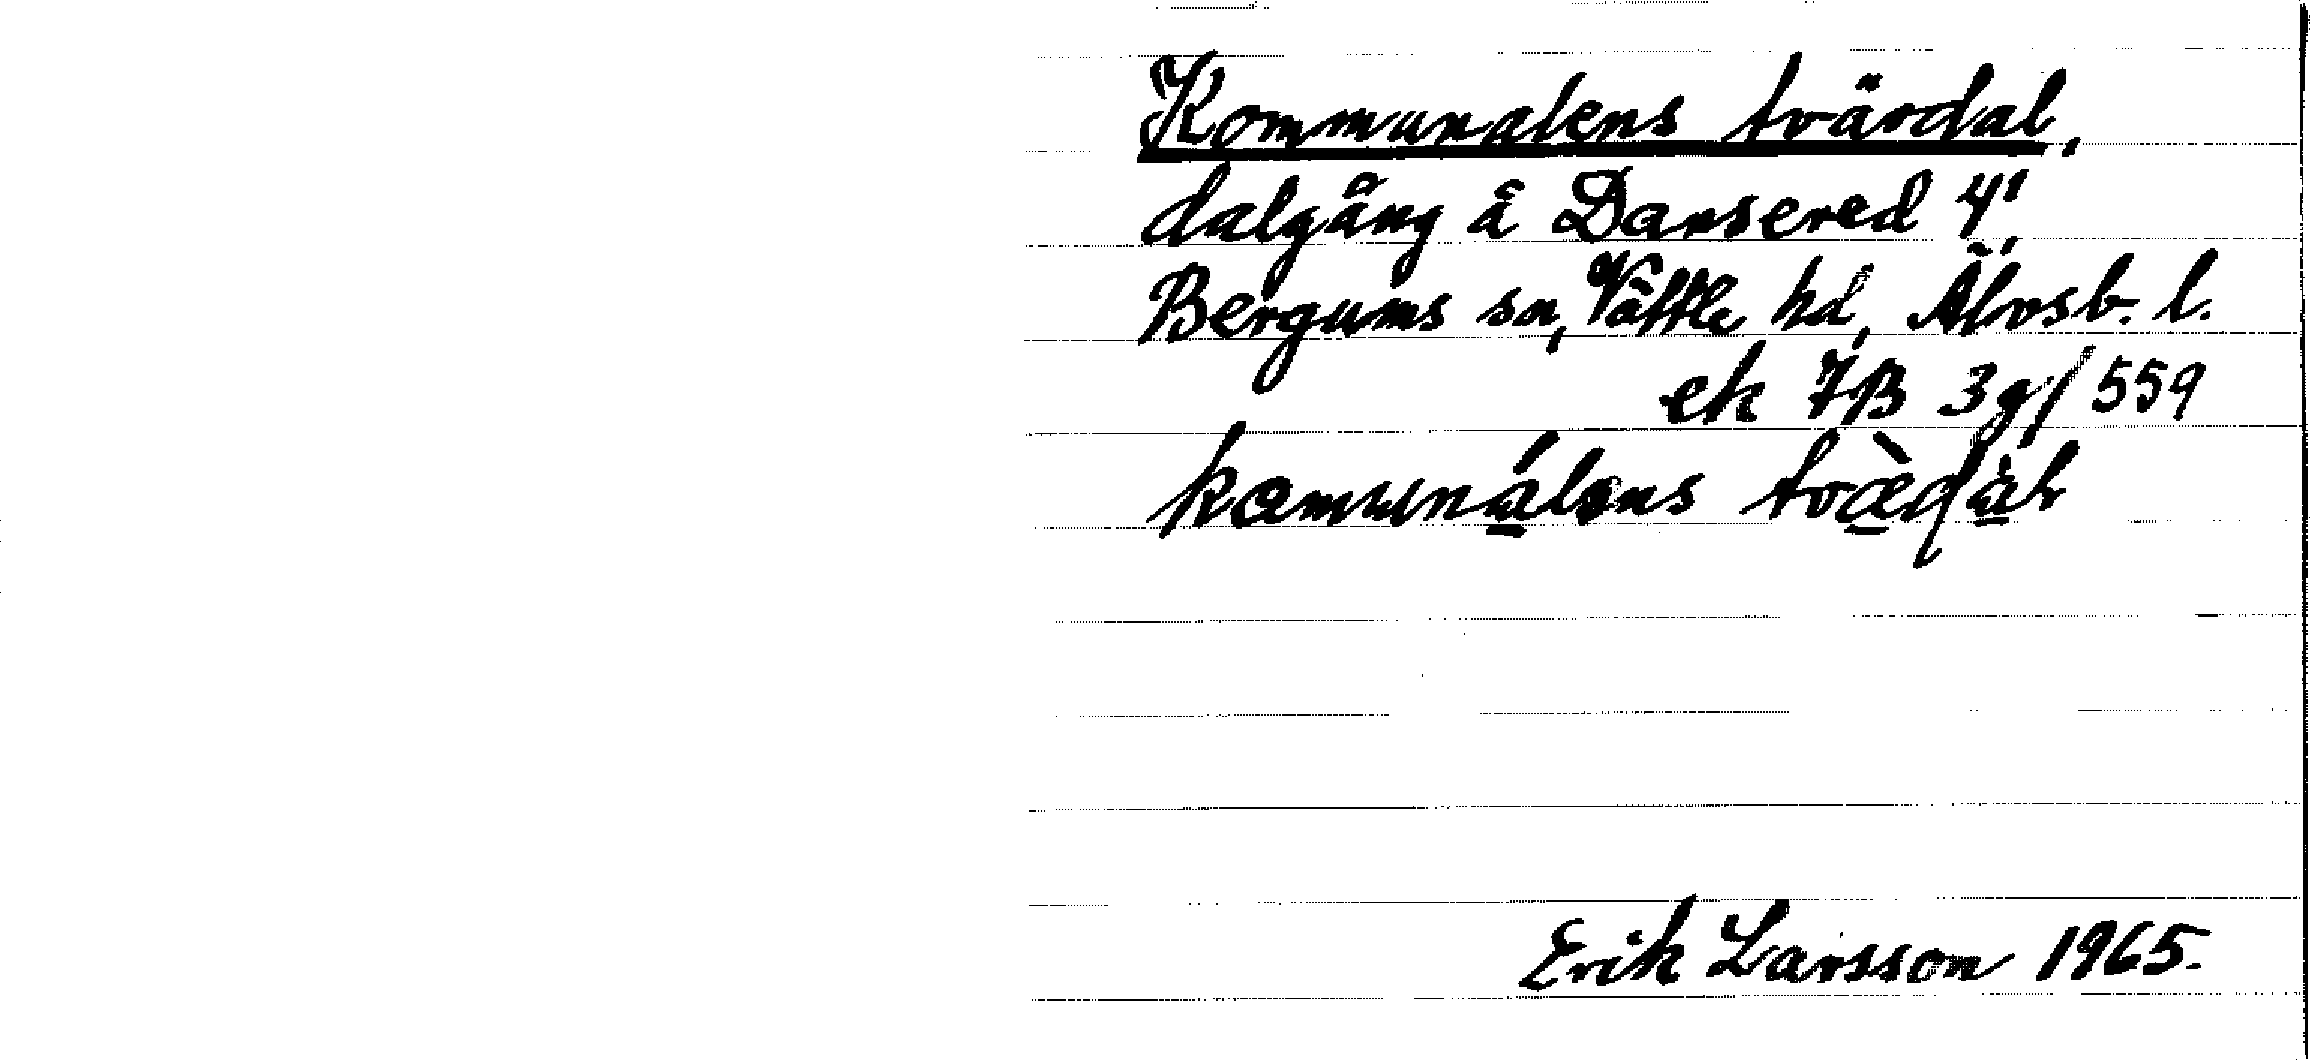 Kommunalens tvärdal,
dalgång å Dansered 4¹,
Bergums sn, Vättle hd, Älvsb. l.
ek 7B 3g/559
komunálens tvæ̀ḍàl
Erik Larsson 1965.